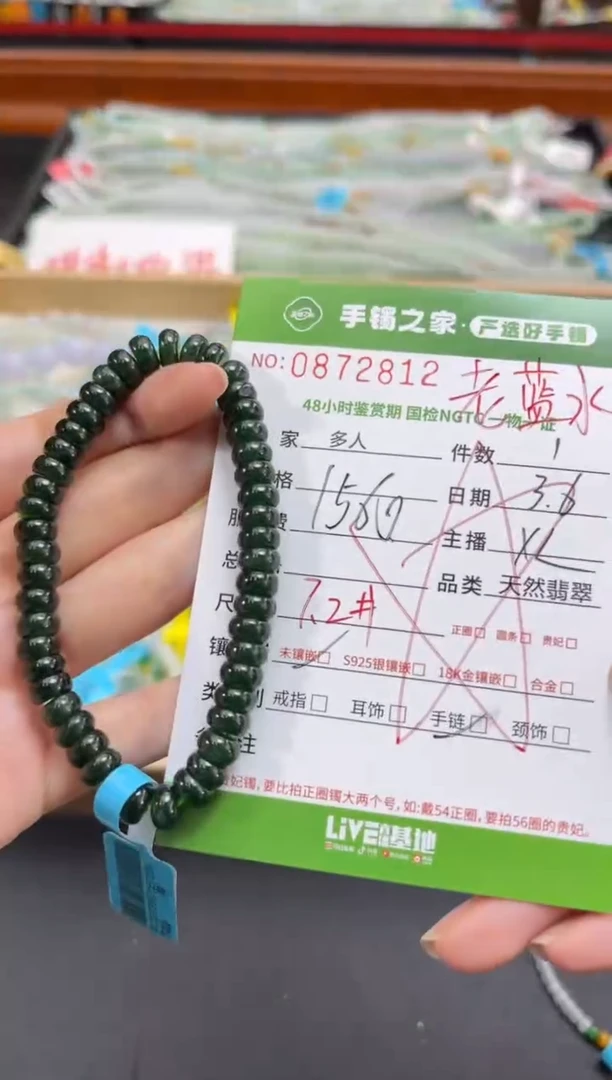 手镯之家·严选好手镯
NO:0872812 老蓝水
48小时鉴赏期 国检NGTC一物一证
家 多人 件数 1
格 1560 日期 3.6
费 主播 XL
总 品类 天然翡翠
尺 7.2# 正圈 圆条 贵妃
镶 未镶嵌 S925银镶嵌 18K金镶嵌 合金
类 别 戒指 耳饰 手链 颈饰
备注
贵妃镯,要比拍正圈镯大两个号,如:戴54正圈,要拍56圈的贵妃。
LIVE 基地